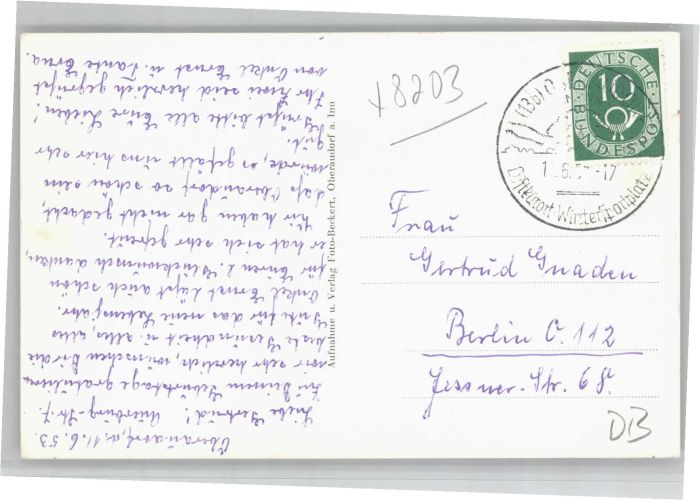 Oberaudorf, d. 11.6.53.
Auerburg-Str. 7.
Liebe Gertrud!
Zu Deinem Geburtstage gratulieren
wir sehr herzlich, wünschen Dir die
beste Gesundheit u. alles, alles
Gute für das neue Lebensjahr.
Onkel Ernst läßt auch schön
für Euren L. Glückwunsch danken,
er hat sich sehr gefreut.
Wir haben gar nicht gedacht,
daß Oberaudorf so schön sein
würde, es gefällt uns hier sehr
gut.
Grüßt bitte alle Eure Lieben!
Ihr Zwei seid herzlich gegrüßt
von Onkel Ernst u. Tante Erna.
Aufnahme u. Verlag Foto-Beckert, Oberaudorf a. Inn
+8203
DEUTSCHE
BUNDESPOST
10
(13b) O
6.5 -17
Luftkurort Wintersportplatz
Frau
Gertrud Gnaden
Berlin O. 112
Jessner-Str. 68.
DB